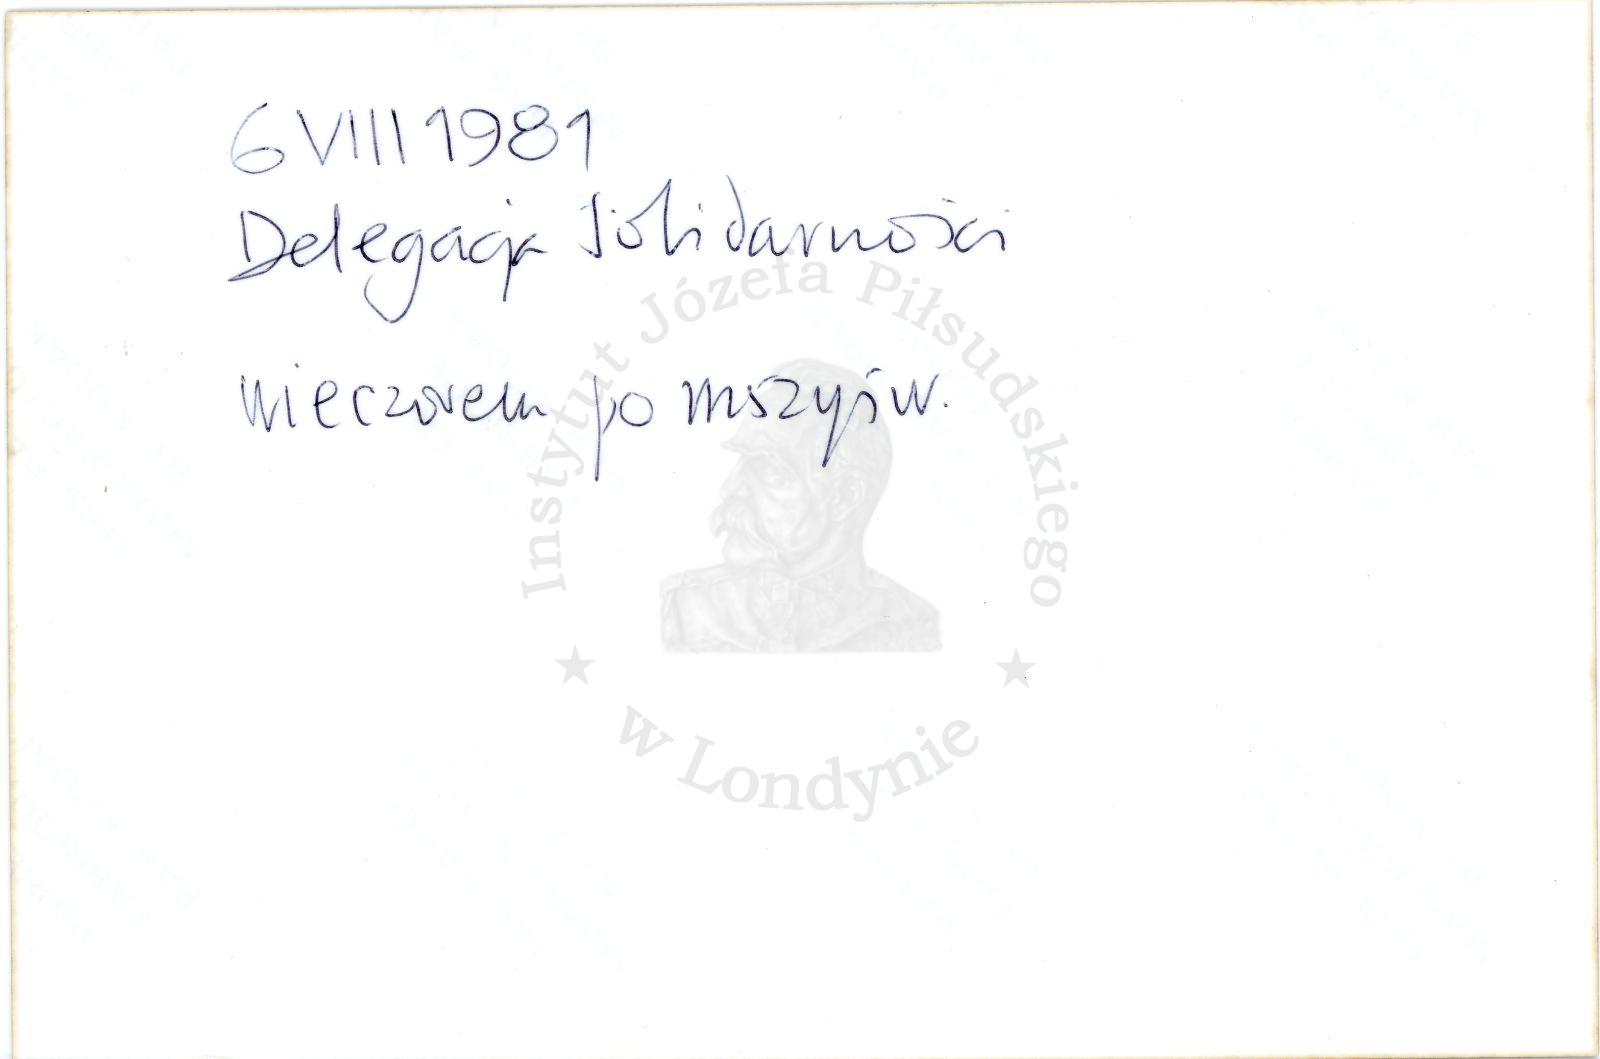 6 VIII 1981
Delegacja Solidarności
wieczorem po mszy św.
Instytut Józefa Piłsudskiego
w Londynie